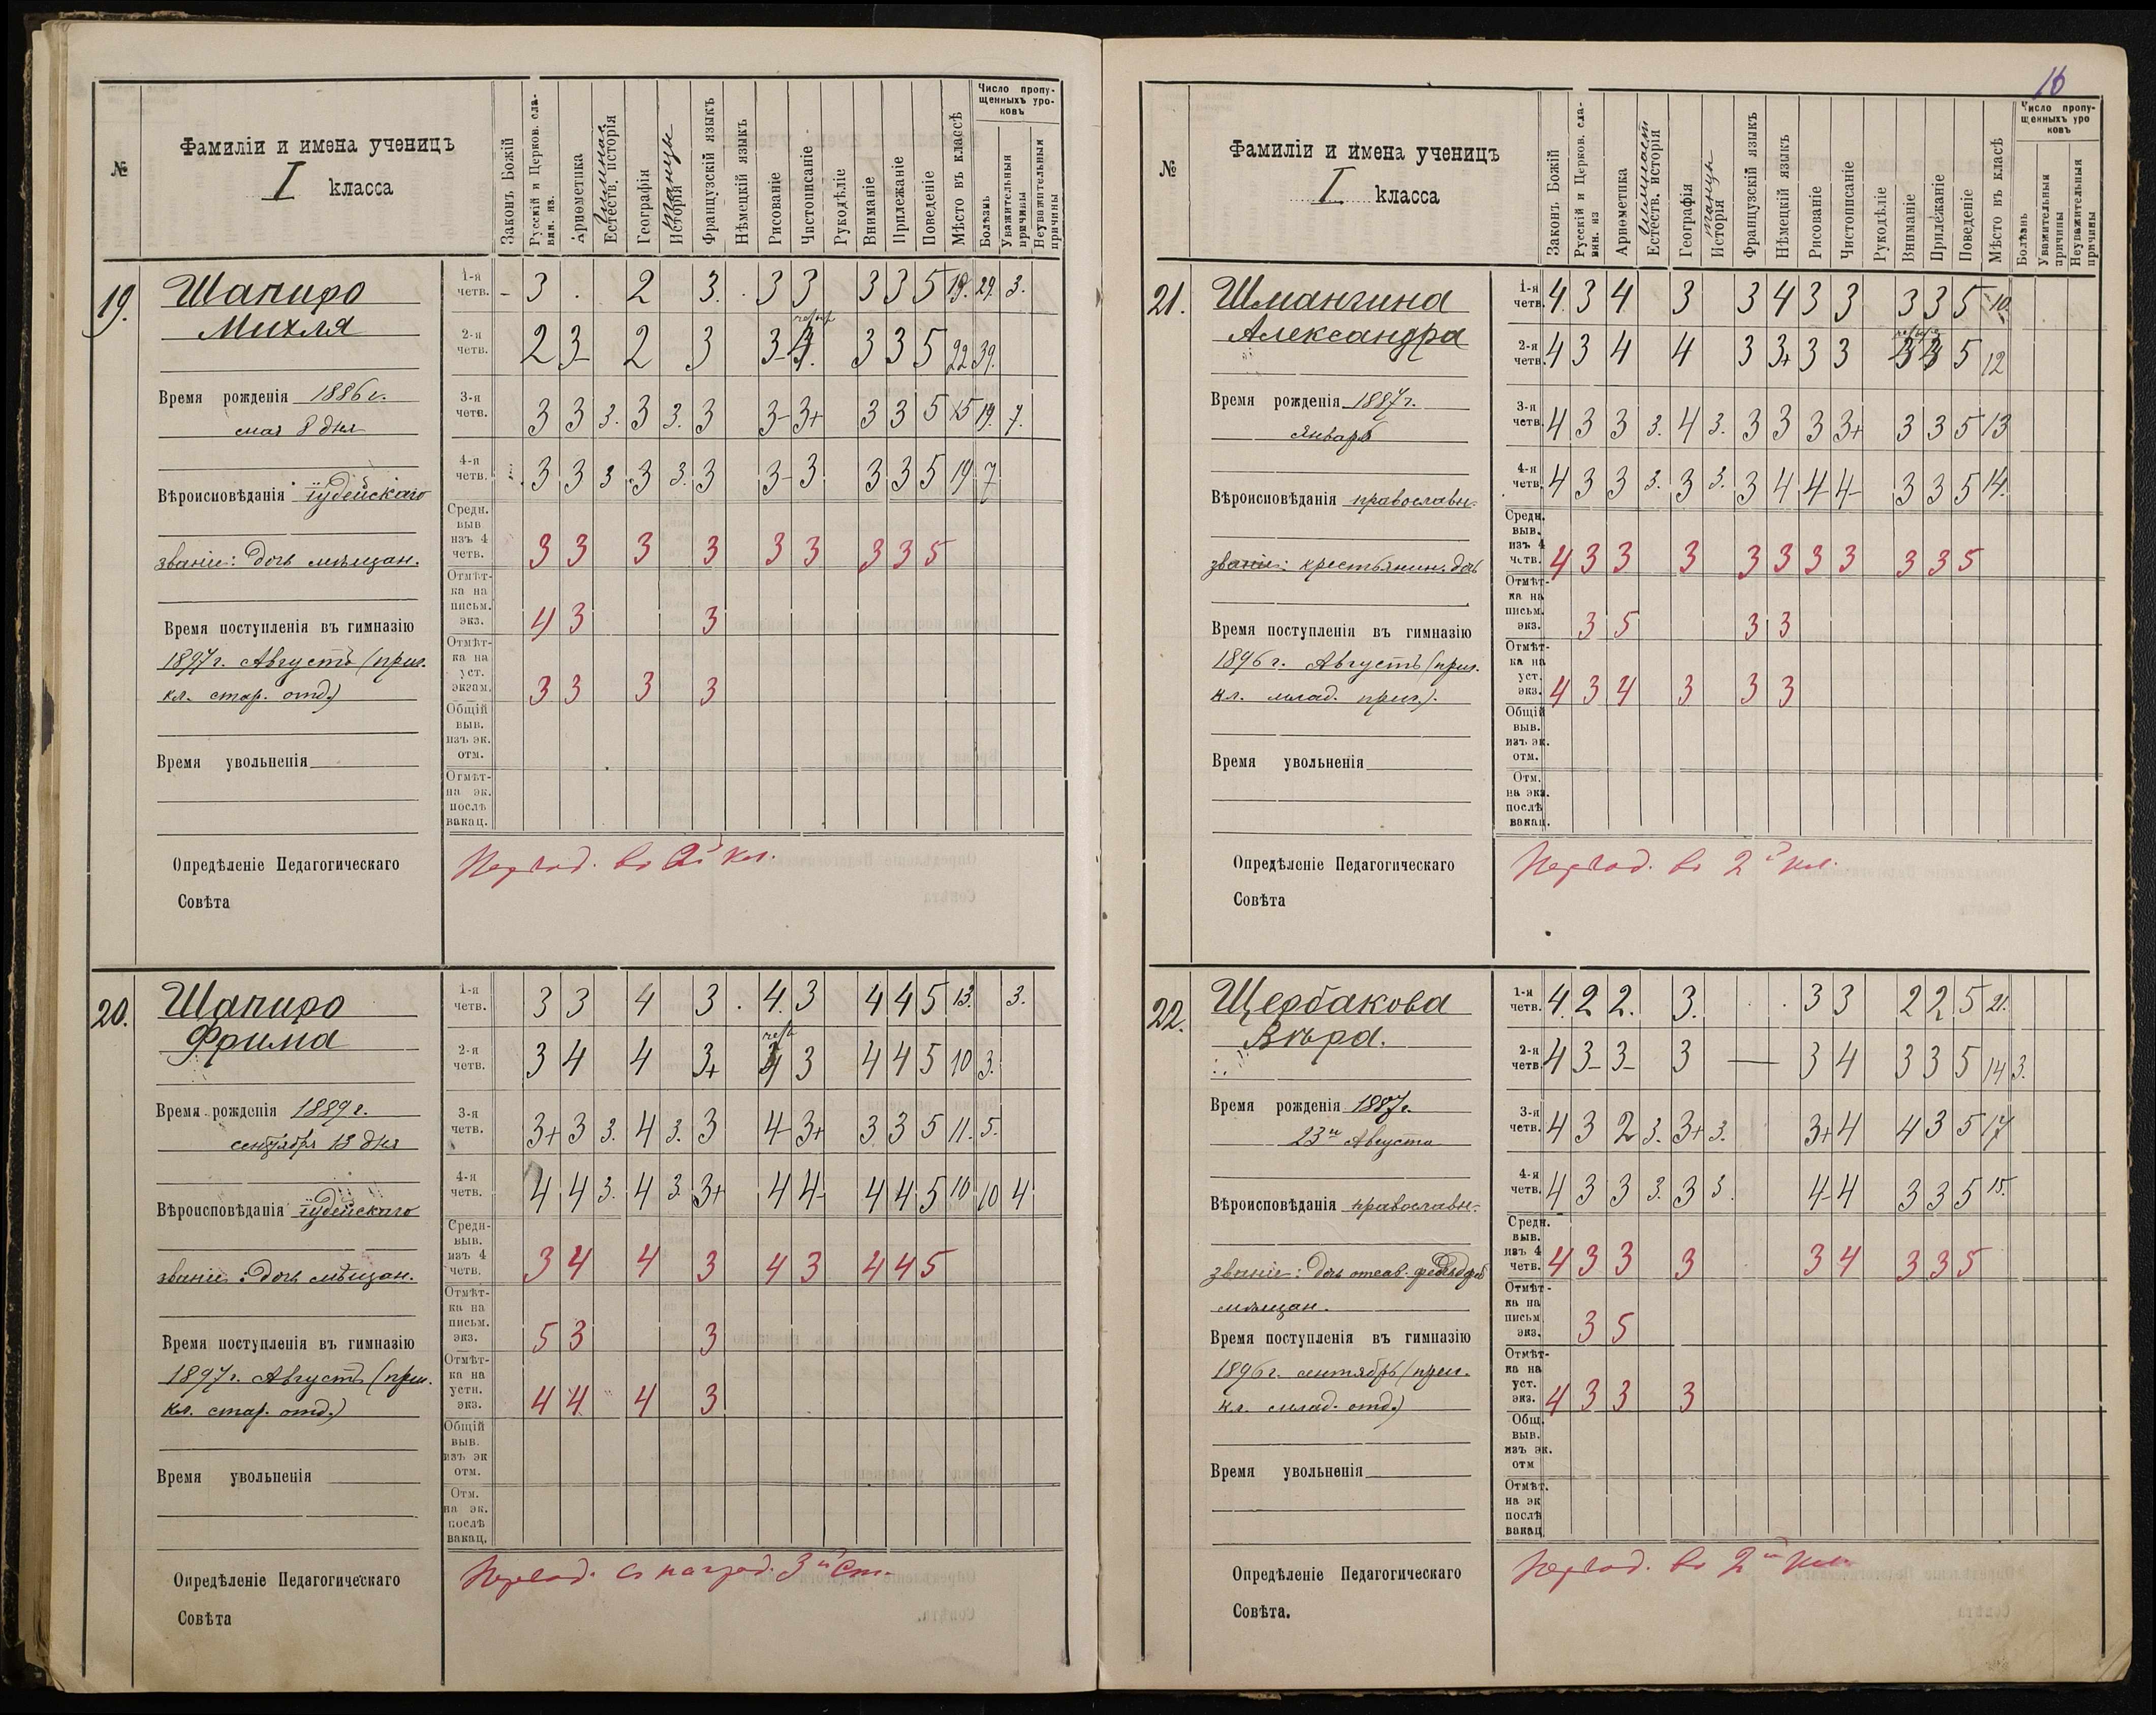 №
Фамиліи и имена ученицъ
I класса
Законъ Божій
Русскій и Церков. сла-
вян. яз.
Ариѳметика
Гимнаст
Естеств. исторія
Географія
Танцы
Исторія
Французскій языкъ
Нѣмецкій языкъ
Рисованіе
Чистописаніе
Рукодѣліе
Вниманіе
Прилежаніе
Поведеніе
Мѣсто въ классѣ
Число пропу-
щенныхъ уро-
ковъ
Болѣзнь
Уважительныя
причины
Неуважительныя
причины
19.
Шапиро
Михля
Время рожденія 1886 г.
мая 8 дня
Вѣроисповѣданія іудейскаго
званіе: дочь мѣщан.
Время поступленія въ гимназію
1897 г. Августъ (приг.
кл. стар. отд.)
Время увольненія
1-я четв. – 3 . 2 3. . 3 3 3 3 5 19. 29. 3.
2-я четв. 2 3- 2 3 3- 3 3 5 22 39.
3-я четв. 3 3 3. 3 3. 3 3- 3+ 3 3 5 15 19. 7.
4-я четв. 3 3 3 3 3. 3 3- 3 3 3 5 19 7
Средн. выв изъ 4 четв. 3 3 3 3 3 3 3 3 5
Отмѣт-ка на письм. экз. 4 3 3
Отмѣт-ка на уст. экзам. 3 3 3 3
Общій выв. изъ эк. отм.
Отмѣт-на эк. послѣ вакац.
Опредѣленіе Педагогическаго
Совѣта
Перевод. во 2й кл.
20.
Шапиро
Фрима
Время рожденія 1889 г.
сентября 13 дня
Вѣроисповѣданія іудейскаго
званіе: дочь мѣщан.
Время поступленія въ гимназію
1897 г. Августъ (приг.
кл. стар. отд.)
Время увольненія
1-я четв. 3 3 4 3 . 4. 3 4 4 5 13. 3.
2-я четв. 3 4 4 3+ 4 3 4 4 5 10 3.
3-я четв. 3+ 3 3. 4 3. 3 4- 3+ 3 3 5 11. 5.
4-я четв. 4 4 3. 4 3 3+ 4 4- 4 4 5 10 10 4
Средн-выв. изъ 4 четв. 3 4 4 3 4 3 4 4 5
Отмѣт-ка на письм. экз. 5 3 3
Отмѣт-ка на устн. экз. 4 4 4 3
Общій выв. изъ эк отм.
Отм. на эк. послѣ вакац.
Опредѣленіе Педагогическаго
Совѣта
Перевод. съ наград. 3й ст.
16
№
Фамиліи и имена ученицъ
I класса
Законъ Божій
Русскій и Церков. сла-
вян. яз
Ариѳметика
Гимнаст
Естеств. исторія
Географія
танцы
Исторія
Французскій языкъ
Нѣмецкій языкъ
Рисованіе
Чистописаніе
Рукодѣліе
Вниманіе
Прилежаніе
Поведеніе
Мѣсто въ класѣ
Число пропу-
щенныхъ уро
ковъ
Болѣзнь
Уважительныя
причины
Неуважительныя
причины
21.
Шмангина
Александра
Время рожденія 1887 г.
Январь
Вѣроисповѣданія православн.
званіе: крестьянин. дочь
Время поступленія въ гимназію
1896 г. Августъ (приг.
кл. млад. приг.).
Время увольненія
1-я четв. 4. 3 4 3 3 4 3 3 3 3 5 10.
2-я четв. 4 3 4 4 3 3+ 3 3 3 3 5 12
3-я четв. 4 3 3 3. 4 3. 3 3 3 3+ 3 3 5 13
4-я четв. 4 3 3 3. 3 3. 3 4 4- 4- 3 3 5 14.
Средн. выв. изъ 4 четв. 4 3 3 3 3 3 3 3 3 3 5
Отмѣт-ка на письм. экз. 3 5 3 3
Отмѣт-ка на уст. экз. 4 3 4 3 3 3
Общій выв. изъ эк. отм.
Отм. на экз. послѣ вакац.
Опредѣленіе Педагогическаго
Совѣта
Перевод. во 2й кл.
22.
Щербакова
Вѣра.
Время рожденія 1887 г.
23го Августа
Вѣроисповѣданія православн.
званіе: дочь отстав.
мѣщан.
Время поступленія въ гимназію
1896 г. сентябрь (приг.
кл. млад. отд.)
Время увольненія
1-я четв. 4. 2 2. 3. . . 3 3 2 2 5 21.
2-я четв. 4 3- 3- 3 — 3 4 3 3 5 14 3.
3-я четв. 4 3 2 3. 3+ 3. 3+ 4 4 3 5 17
4-я четв. 4 3 3 3. 3 3. 4- 4 3 3 5 15.
Средн. выв. изъ 4 четв. 4 3 3 3 3 4 3 3 5
Отмѣт-ка на письм экз. 3 5
Отмѣт-ка на уст. экз. 4 3 3 3
Общ. выв. изъ эк. отм
Отмѣт. на эк послѣ вакац
Опредѣленіе Педагогическаго
Совѣта.
Перевод. во 2й кл.